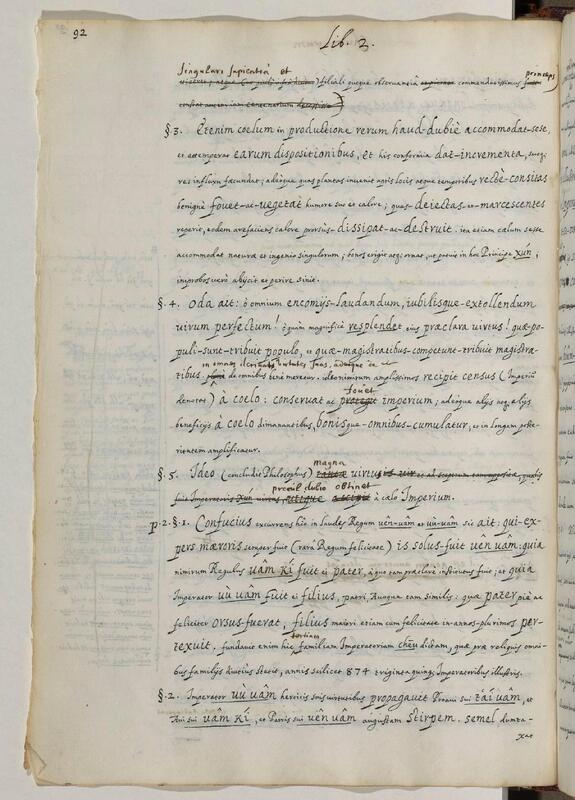 92
Lib. 2.
singulari sapientiâ et
filiali suique observantiâ commendatissimus princeps
§. 3. Etenim coelum in productione rerum haud-dubiè accommodat-sese,
et attemperat earum dispositionibus, et his conformia dat-incrementa, suoq;
res influxu fœcundat; adeòque quas plantas invenit aptis locis atque temporibus rectè-consitas
benignè fouet-ac-vegetat humore suo et calore; quas deiectas-et-marcescentes
reperit, eodem arefaciens calore prorsùs dissipat-ac-destruit. ita etiam cælum sese
accommodat naturæ et ingenio singulorum; bonos erigit atq; ornat, ut patuit in hoc Principe xún;
improbos verò abijcit et perire sinit.
§. 4. Oda ait: ô omnium encomijs-laudandum, iubilisque-extollendum
virum perfectum! ô quàm magnificè resplendet eius præclara virtus! quæ-po-
puli-sunt-tribuit populo, et quæ-magistratibus-competunt-tribuit magistra-
in omnes
tibus de omnibus benè meretur. ideo recipit census (Imperiũ
fouet
denotat) à coelo: conseruat ac protegit imperium; adeòque alijs atq; alijs
beneficijs à coelo dimanantibus, bonisque-omnibus-cumulatur, et in longam poste-
ritatem amplificatur.
magna
§. 5. Ideo (concludit Philosophus) virtus
procul dubio obtinet
à cælo Imperium.
p. 2. §. 1. Confucius excurrens hîc in laudes Regum vên-uâm et vù-uâm sic ait: qui-ex-
pers mæroris semper fuit (rara Regum felicitas) is solus-fuit vên uâm: quia
nimirum Regulus uâm Kí fuit ei pater, à quo tam præclarè institutus fuit; et quia
Imperator vù uâm fuit ei filius, patri Auoque tam similis: quæ pater piè ac
feliciter orsus-fuerat, filius maiori etiam cum felicitate in-annos-plurimos per-
tertiam
texuit. fundavit enim hîc familiam Imperatoriam cheũ dictam, quæ præ reliquis omni-
bus familijs diutius stetit, annis scilicet 874 triginta quinq; Imperatoribus illustris.
§. 2. Imperator vù uâm heroicis suis virtutibus propagavit Proaui sui tái uâm, et
Aui sui uâm Kí, et Patris sui vên uâm augustam stirpem. semel dunta-
xat